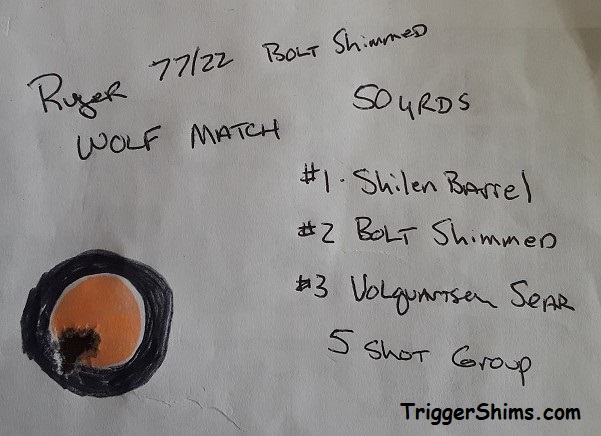 Ruger 77/22 Bolt Shimmed
50 YRDS
WOLF MATCH
#1. Shilen Barrel
#2 Bolt Shimmed
#3 Volquartsen Sear
5 Shot Group
TriggerShims.com